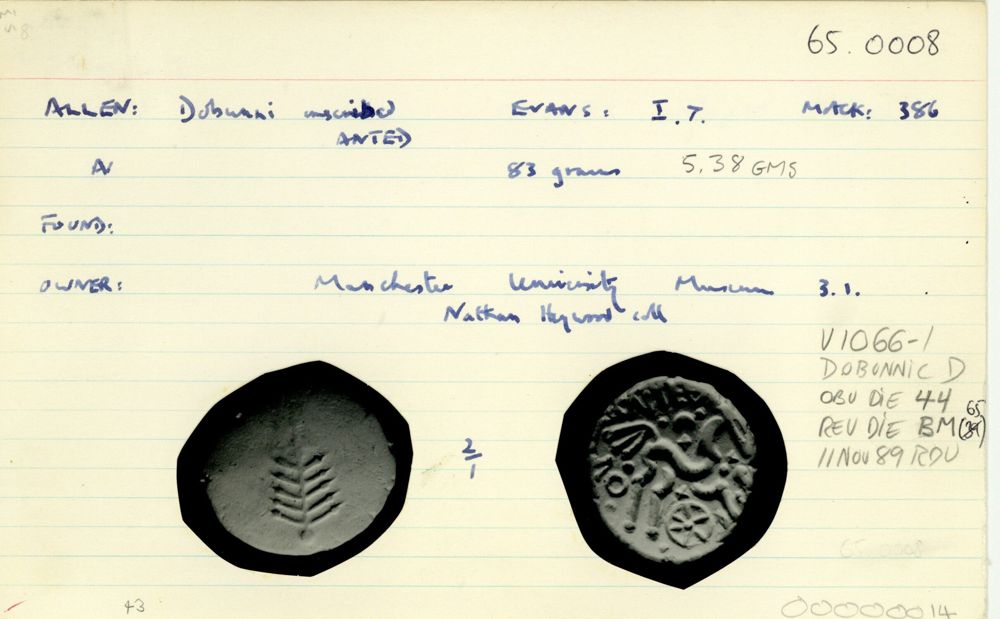 65.0008
ALLEN: Dobunni inscribed EVANS: I.7. MACK: 386
ANTED
AV 83 grains 5.38 GMS
FOUND:
OWNER: Manchester University Museum 3.1.
Nathan Heywood coll
V1066-1
DOBUNNIC D
OBV DIE 44
REV DIE BM 65
11 NOV 89 RDV
2/1
65.0008
43
00000014